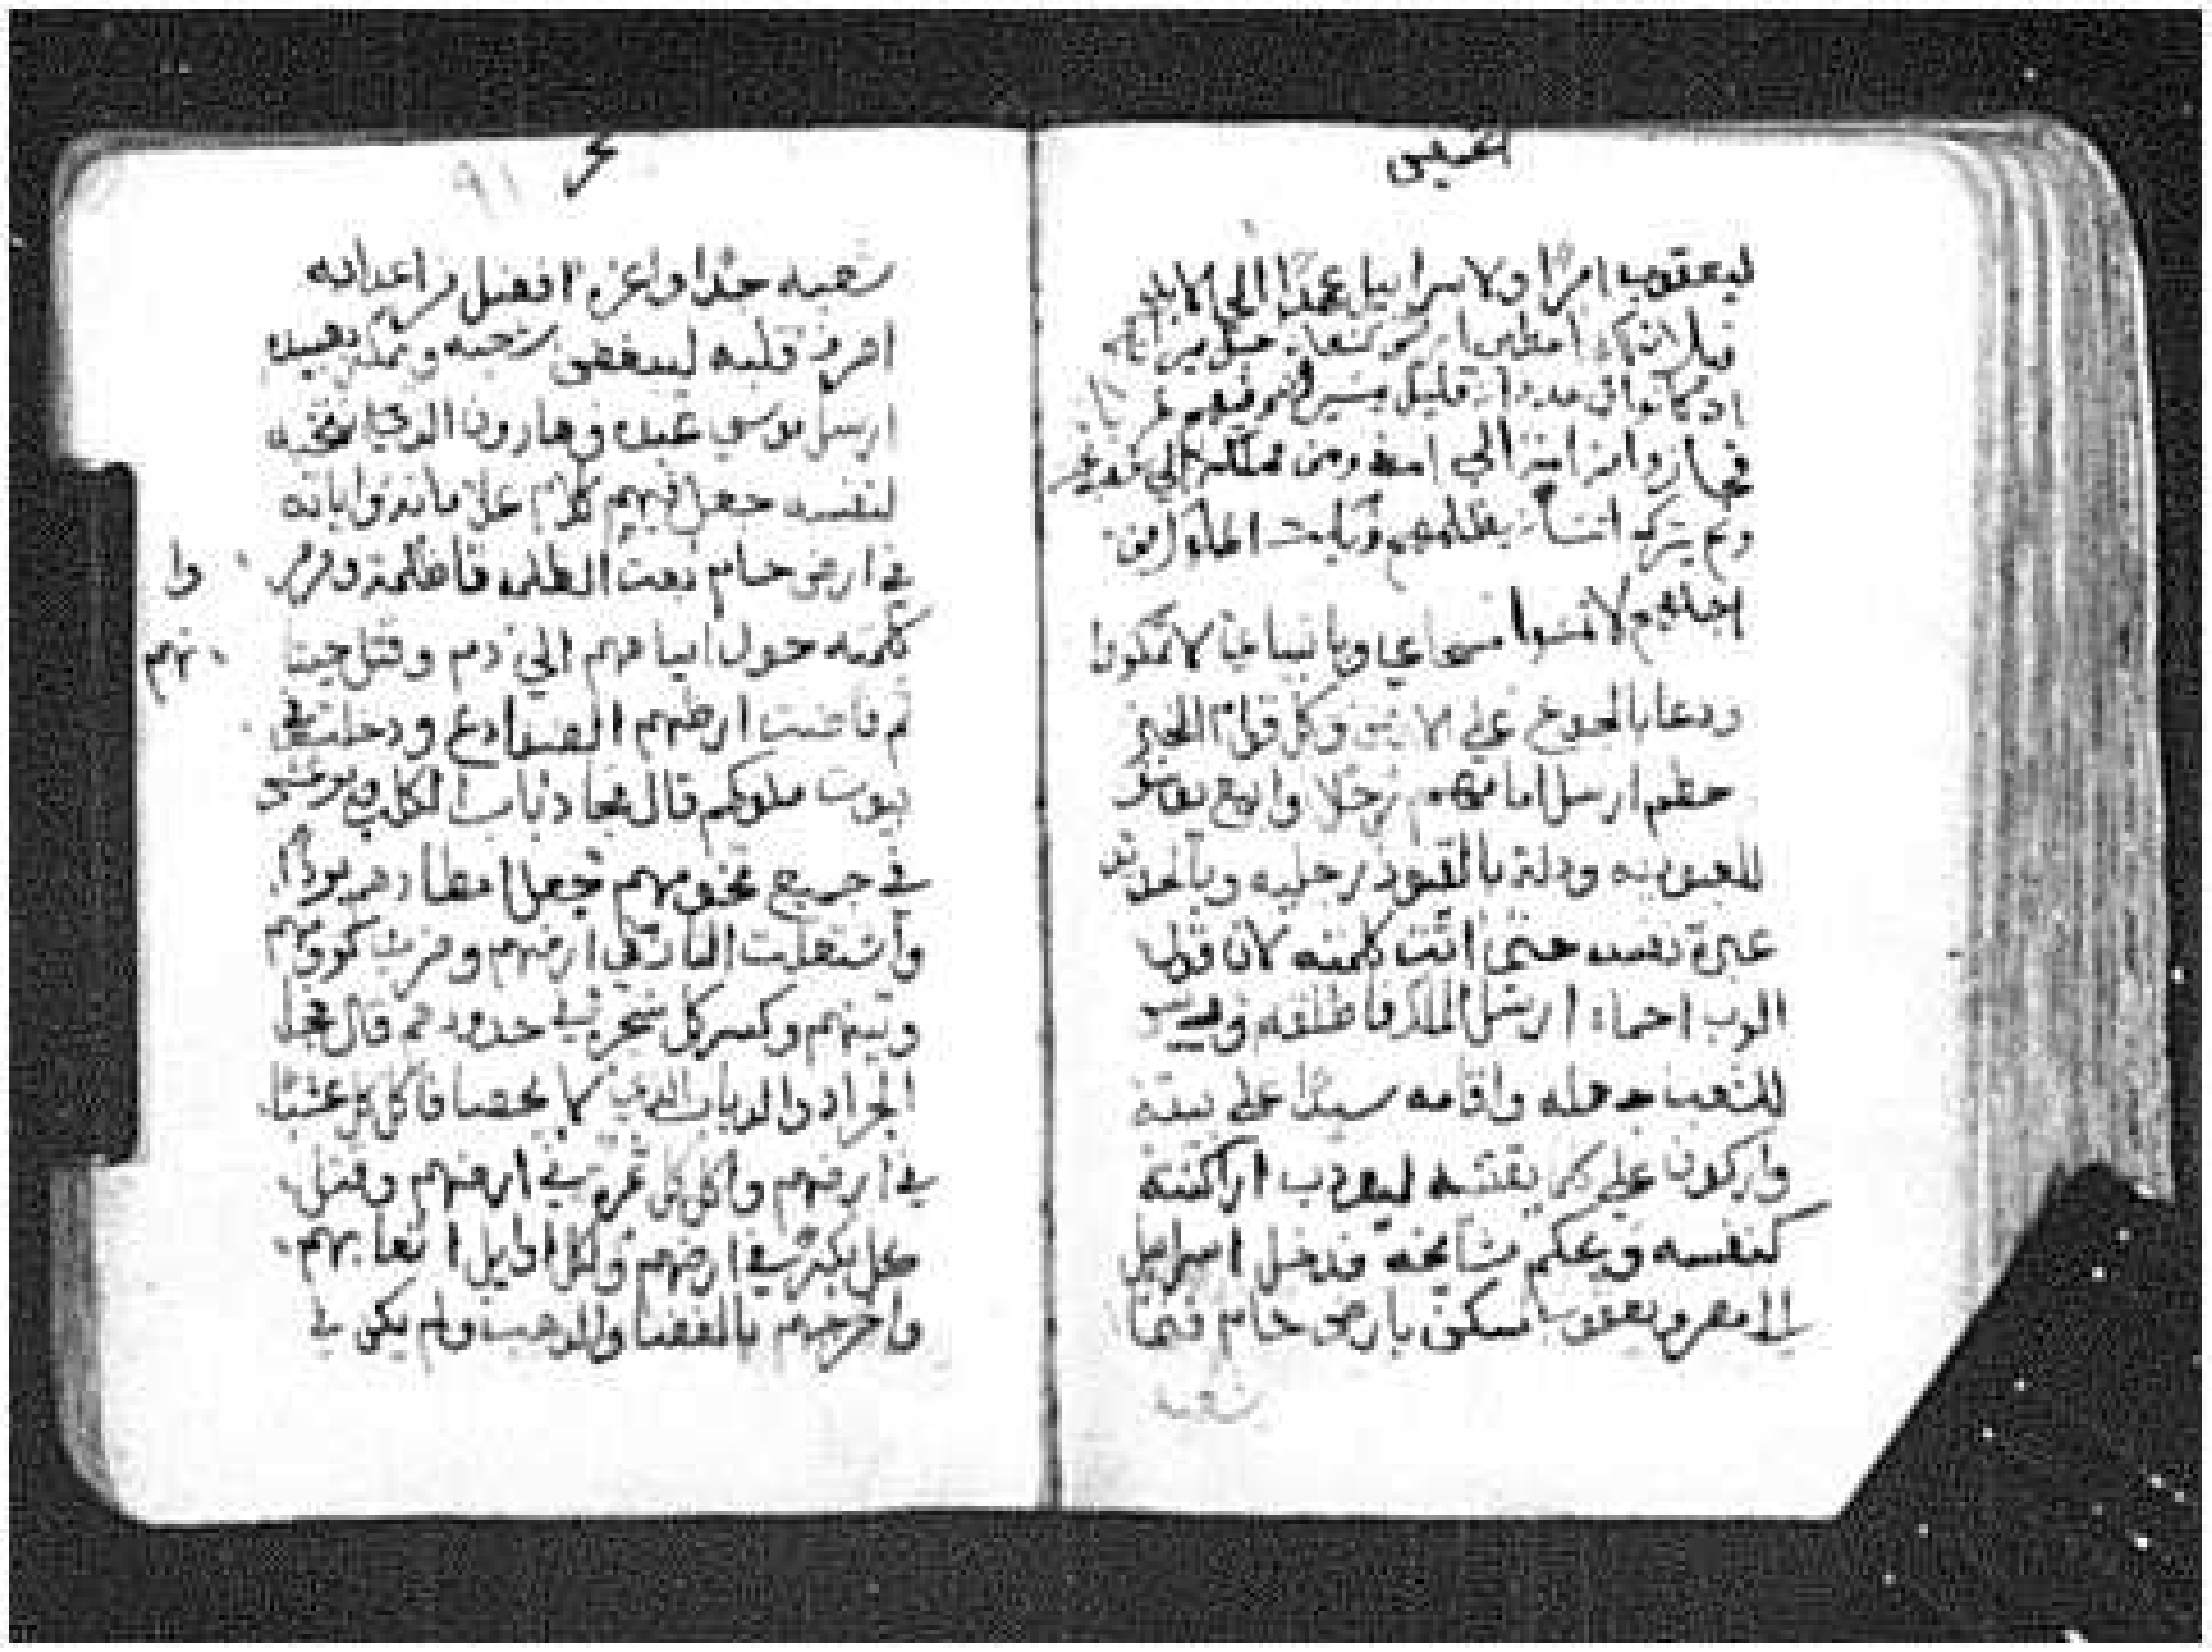 ليعقوب امرًا ولاسراييل عهدًا الي الابد
قايلا اني لك اعطي ارض كنعان حبل ميراثكم
اذ كانوا في عددا قليل يسير وغربا فيها
فجازوا من امة الي امة ومن مملكة الي شعب
ولم يترك انسان يظلمهم وبكت الملوك من
اجلهم لا تمسوا مسحاي وبانبياي لا تمكروا
ودعا بالجوع علي الارض وكل قوة الخبز
حطم ارسل امامهم رجلا وابيع يوسف
للعبوديه ودلة بالقيود رجليه وبالحديد
عبرة نفسه حتي اتت كلمته لان قول
الرب احماه ارسل الملك فاطلقه وريس
الشعب جعله واقامه سيدًا علي بيته
واركون علي كل يقتنيه ليودب اراكنته
كنفسه ويحكم مشايخه ودخل اسراييل
الي مصر ويعقوب سكن بارض حام
شعبه
٩١
شعبه جدا واعزه افضل من اعدايه
اصرف قلبه ليبغض شعبه ويمكر بعبيده
ارسل موسي عبده وهارون الذي انتخبه
لنفسه جعل فيهم كلام علاماته واياته
في ارض حام بعث الظلمه فاظلمة
كلمته حول مياههم الي دم وقتل حيتا
نهم
فاضت ارضهم الضفادع ودخلت في
بيوت ملوكهم قال فجا ذباب الكلب
في جميع تخومهم جعل امطارهم بردًا
واشتعلت النار في ارضهم وضرب كرومهم
وتينهم وكسر كل شجر في حدودهم قال فجا
الجراد والدباب الذي لا يحصا فاكل كل عشب
في ارضهم واكل كل ثمرة في ارضهم وقتل
كل بكر في ارضهم وكل اوايل اتعابهم
واخرجهم بالفضة والذهب ولم يكن في